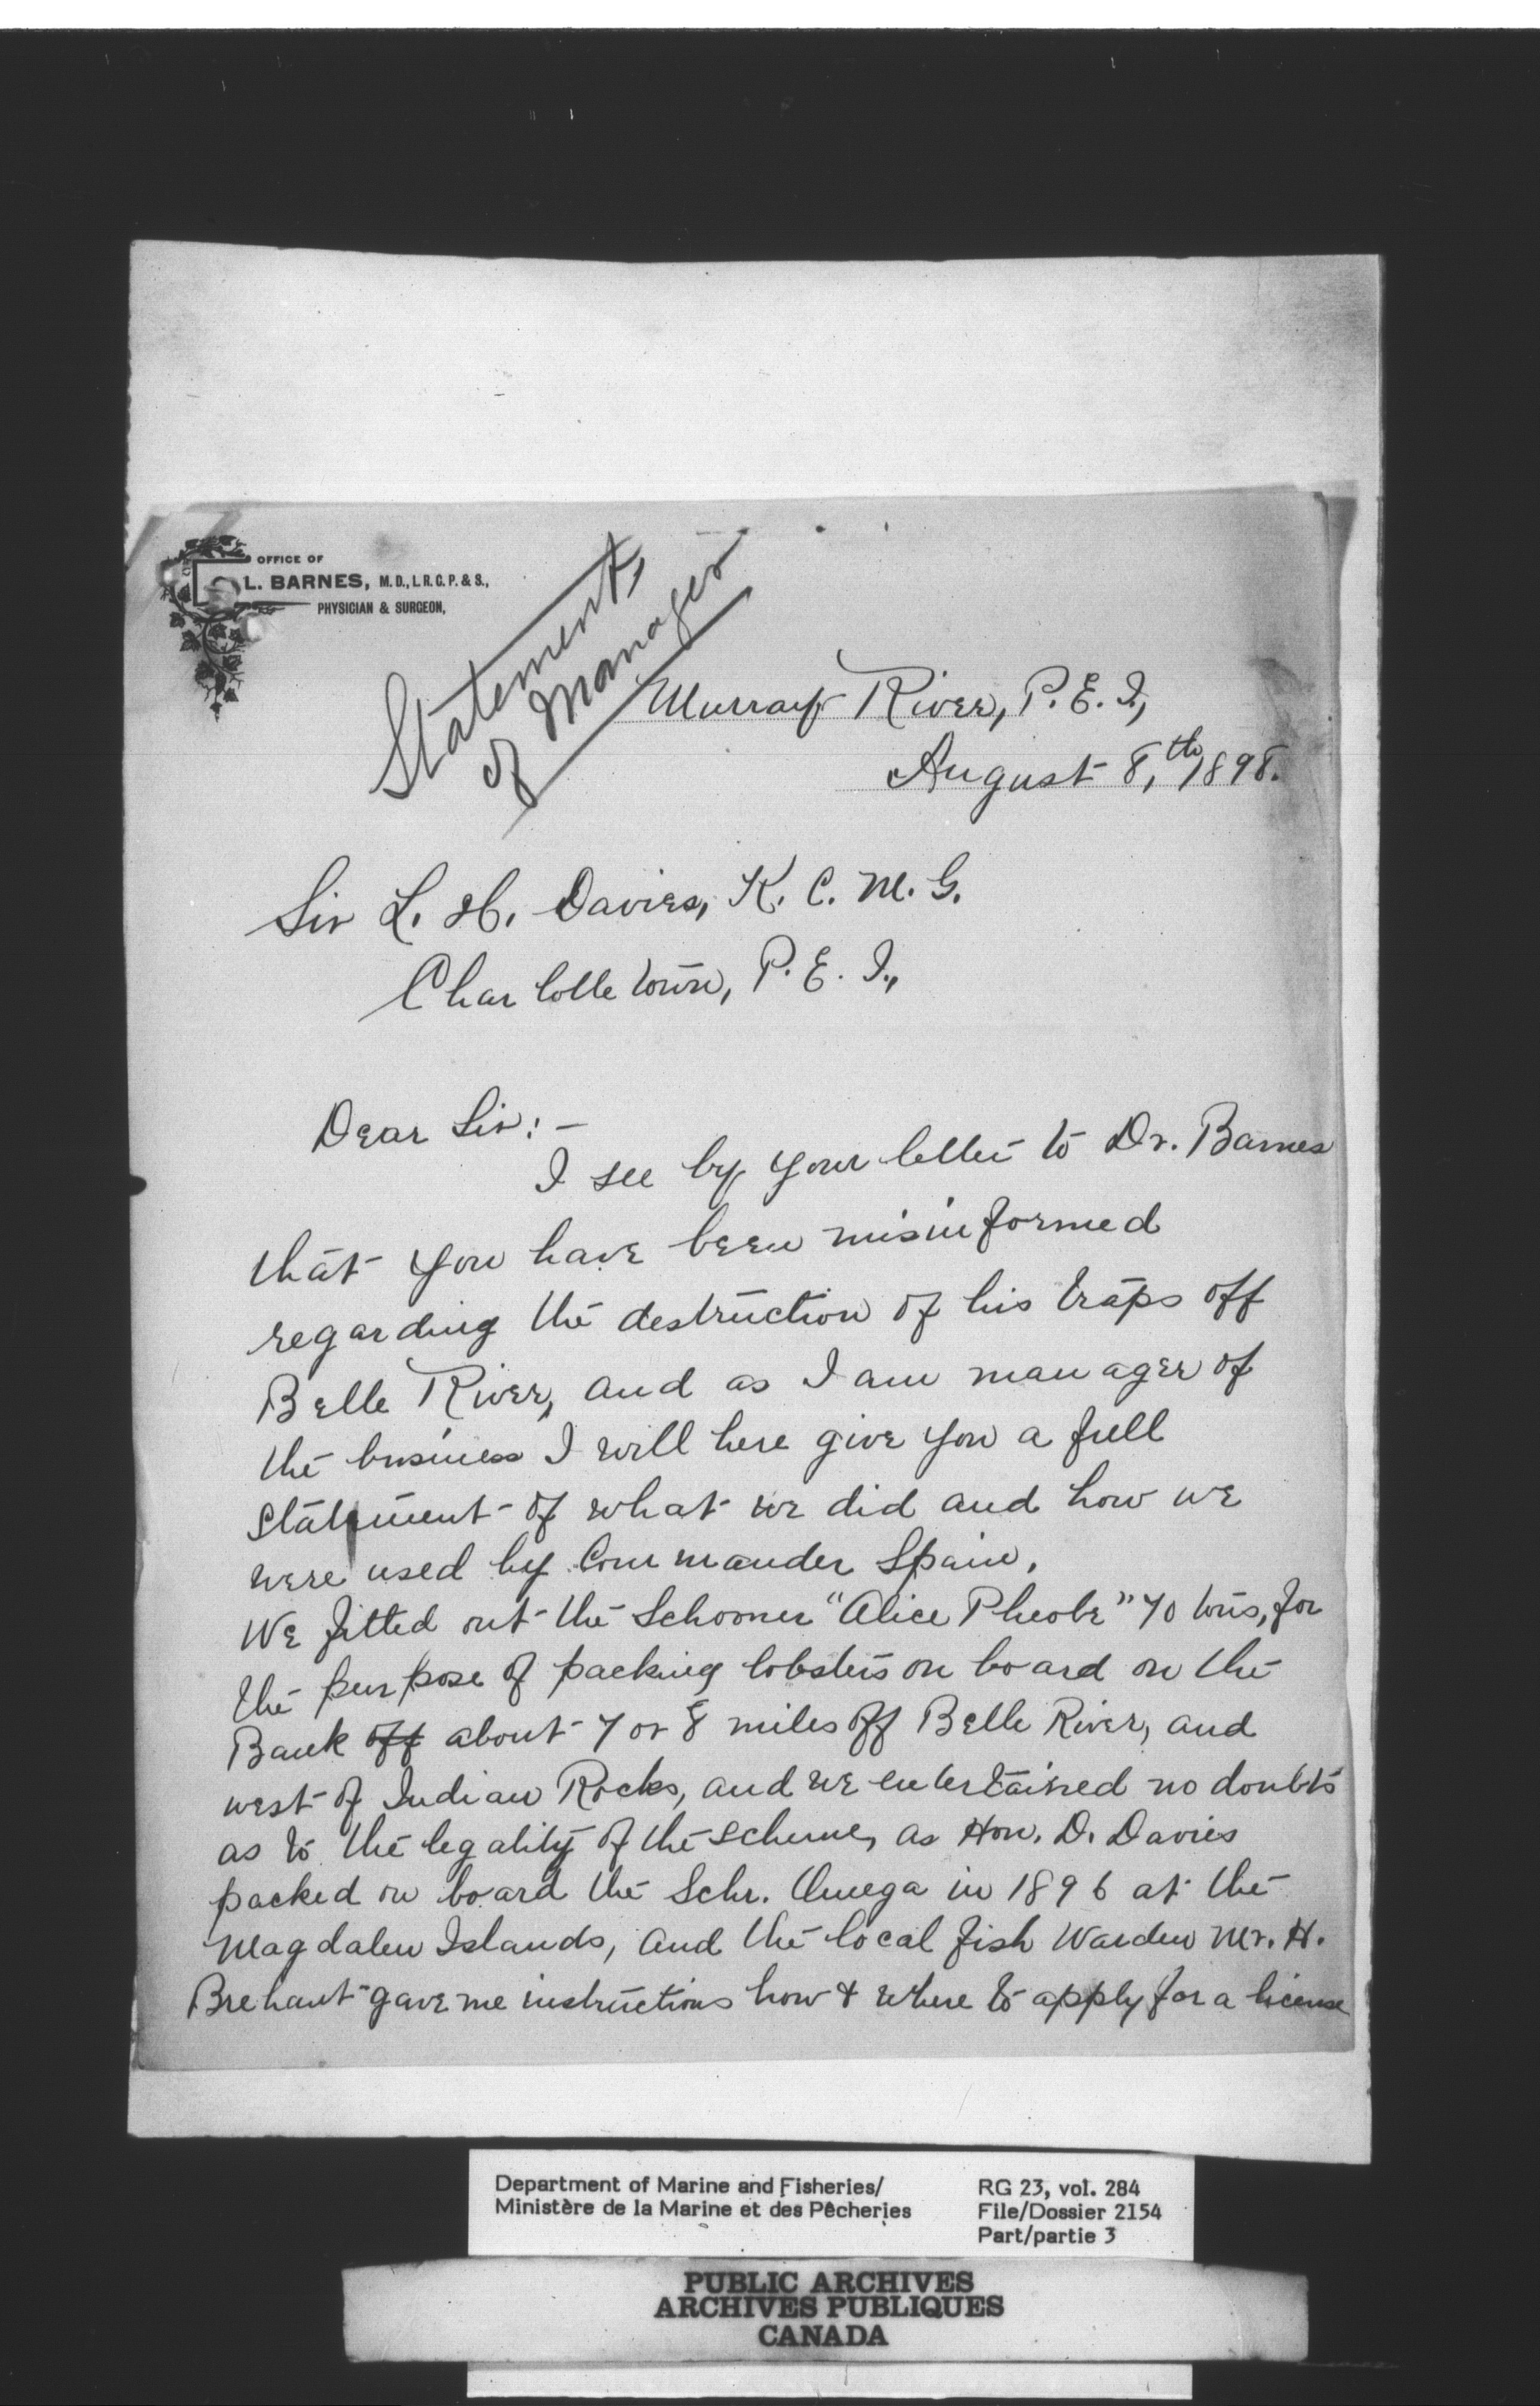 OFFICE OF
L. BARNES, M.D., L.R.C.P. & S.,
PHYSICIAN & SURGEON,
Statement,
of Manager
Murray River, P.E.I.,
August 8,th 1898.
Sir L. H. Davies, K. C. M. G.
Charlottetown, P. E. I.,
Dear Sir:-
I see by your letter to Dr. Barnes
that you have been misinformed
regarding the destruction of his traps off
Belle River, and as I am manager of
the business I will here give you a full
statement of what we did and how we
were used by Commander Spain.
We fitted out the Schooner "Alice Pheobe" 70 tons, for
the purpose of packing lobsters on board on the
Bank off about 7 or 8 miles off Belle River, and
west of Indian Rocks, and we entertained no doubts
as to the legality of the scheme, as Hon. D. Davies
packed on board the Schr. Omega in 1896 at the
Magdalen Islands, and the local fish Warden Mr. H.
Brehaut gave me instructions how & where to apply for a license
Department of Marine and Fisheries/
Ministère de la Marine et des Pêcheries
RG 23, vol. 284
File/Dossier 2154
Part/partie 3
PUBLIC ARCHIVES
ARCHIVES PUBLIQUES
CANADA